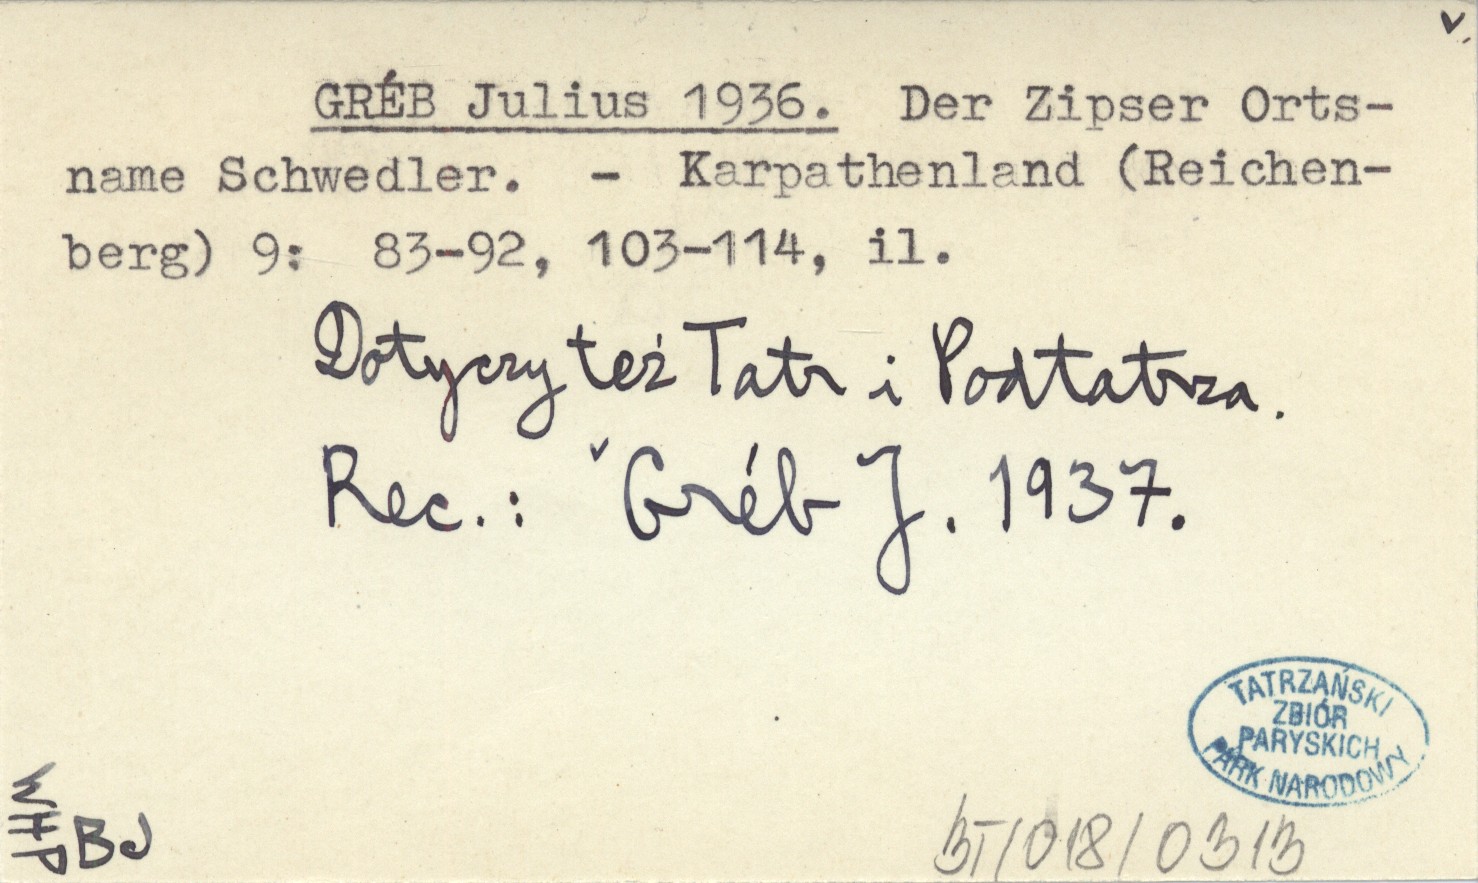 GRÉB Julius 1936. Der Zipser Orts-
name Schwedler. - Karpathenland (Reichen-
berg) 9: 83-92, 103-114, il.
Dotyczy też Tatr i Podtatrza.
Rec.: ˇGréb J. 1937.
TATRZAŃSKI
ZBIÓR
PARYSKICH
PARK NARODOWY
BJ
BT/018/0313